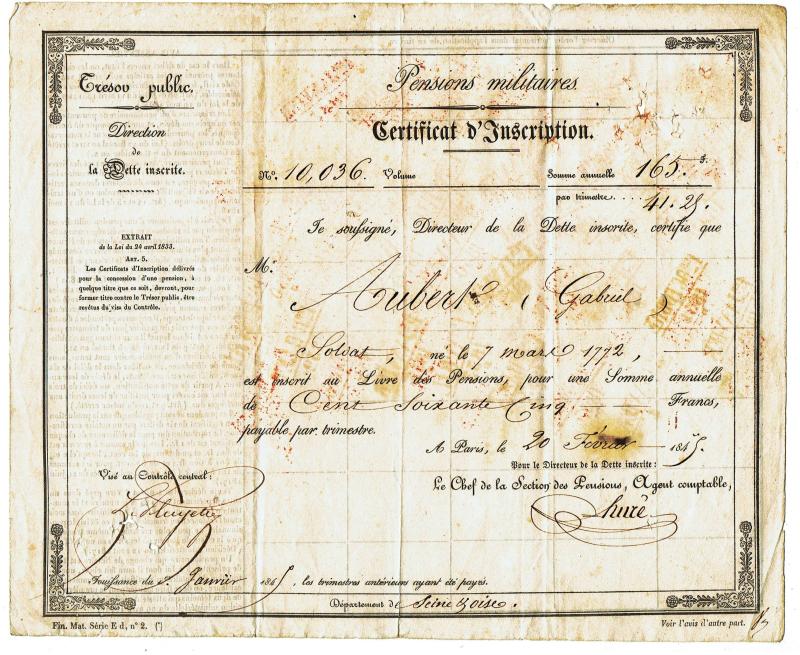 Trésor public.
Direction
de
la Dette inscrite.
EXTRAIT
de la Loi du 24 avril 1833.
ART. 5.
Les Certificats d'Inscription délivrés
pour la concession d'une pension, à
quelque titre que ce soit, devront, pour
former titre contre le Trésor public, être
revêtus du visa du Contrôle.
Pensions militaires.
Certificat d'Inscription.
N°. 10,036. Volume Somme annuelle 165 f.
par trimestre .... 41.25.
Je soussigné, Directeur de la Dette inscrite, certifie que
M.
Aubert (Gabriel)
Soldat, né le 7 mars 1772,
est inscrit au Livre des Pensions, pour une Somme annuelle
de Cent Soixante Cinq Francs,
payable par trimestre.
A Paris, le 20 Février 1845.
Pour le Directeur de la Dette inscrite :
Le Chef de la Section des Pensions, Agent comptable,
Visé au Contrôle central :
Jouissance du 1er Janvier 1845, les trimestres antérieurs ayant été payés.
Département de Seine & oise.
Fin. Mat. Série E d, n° 2. (*)
Voir l'avis d'autre part.